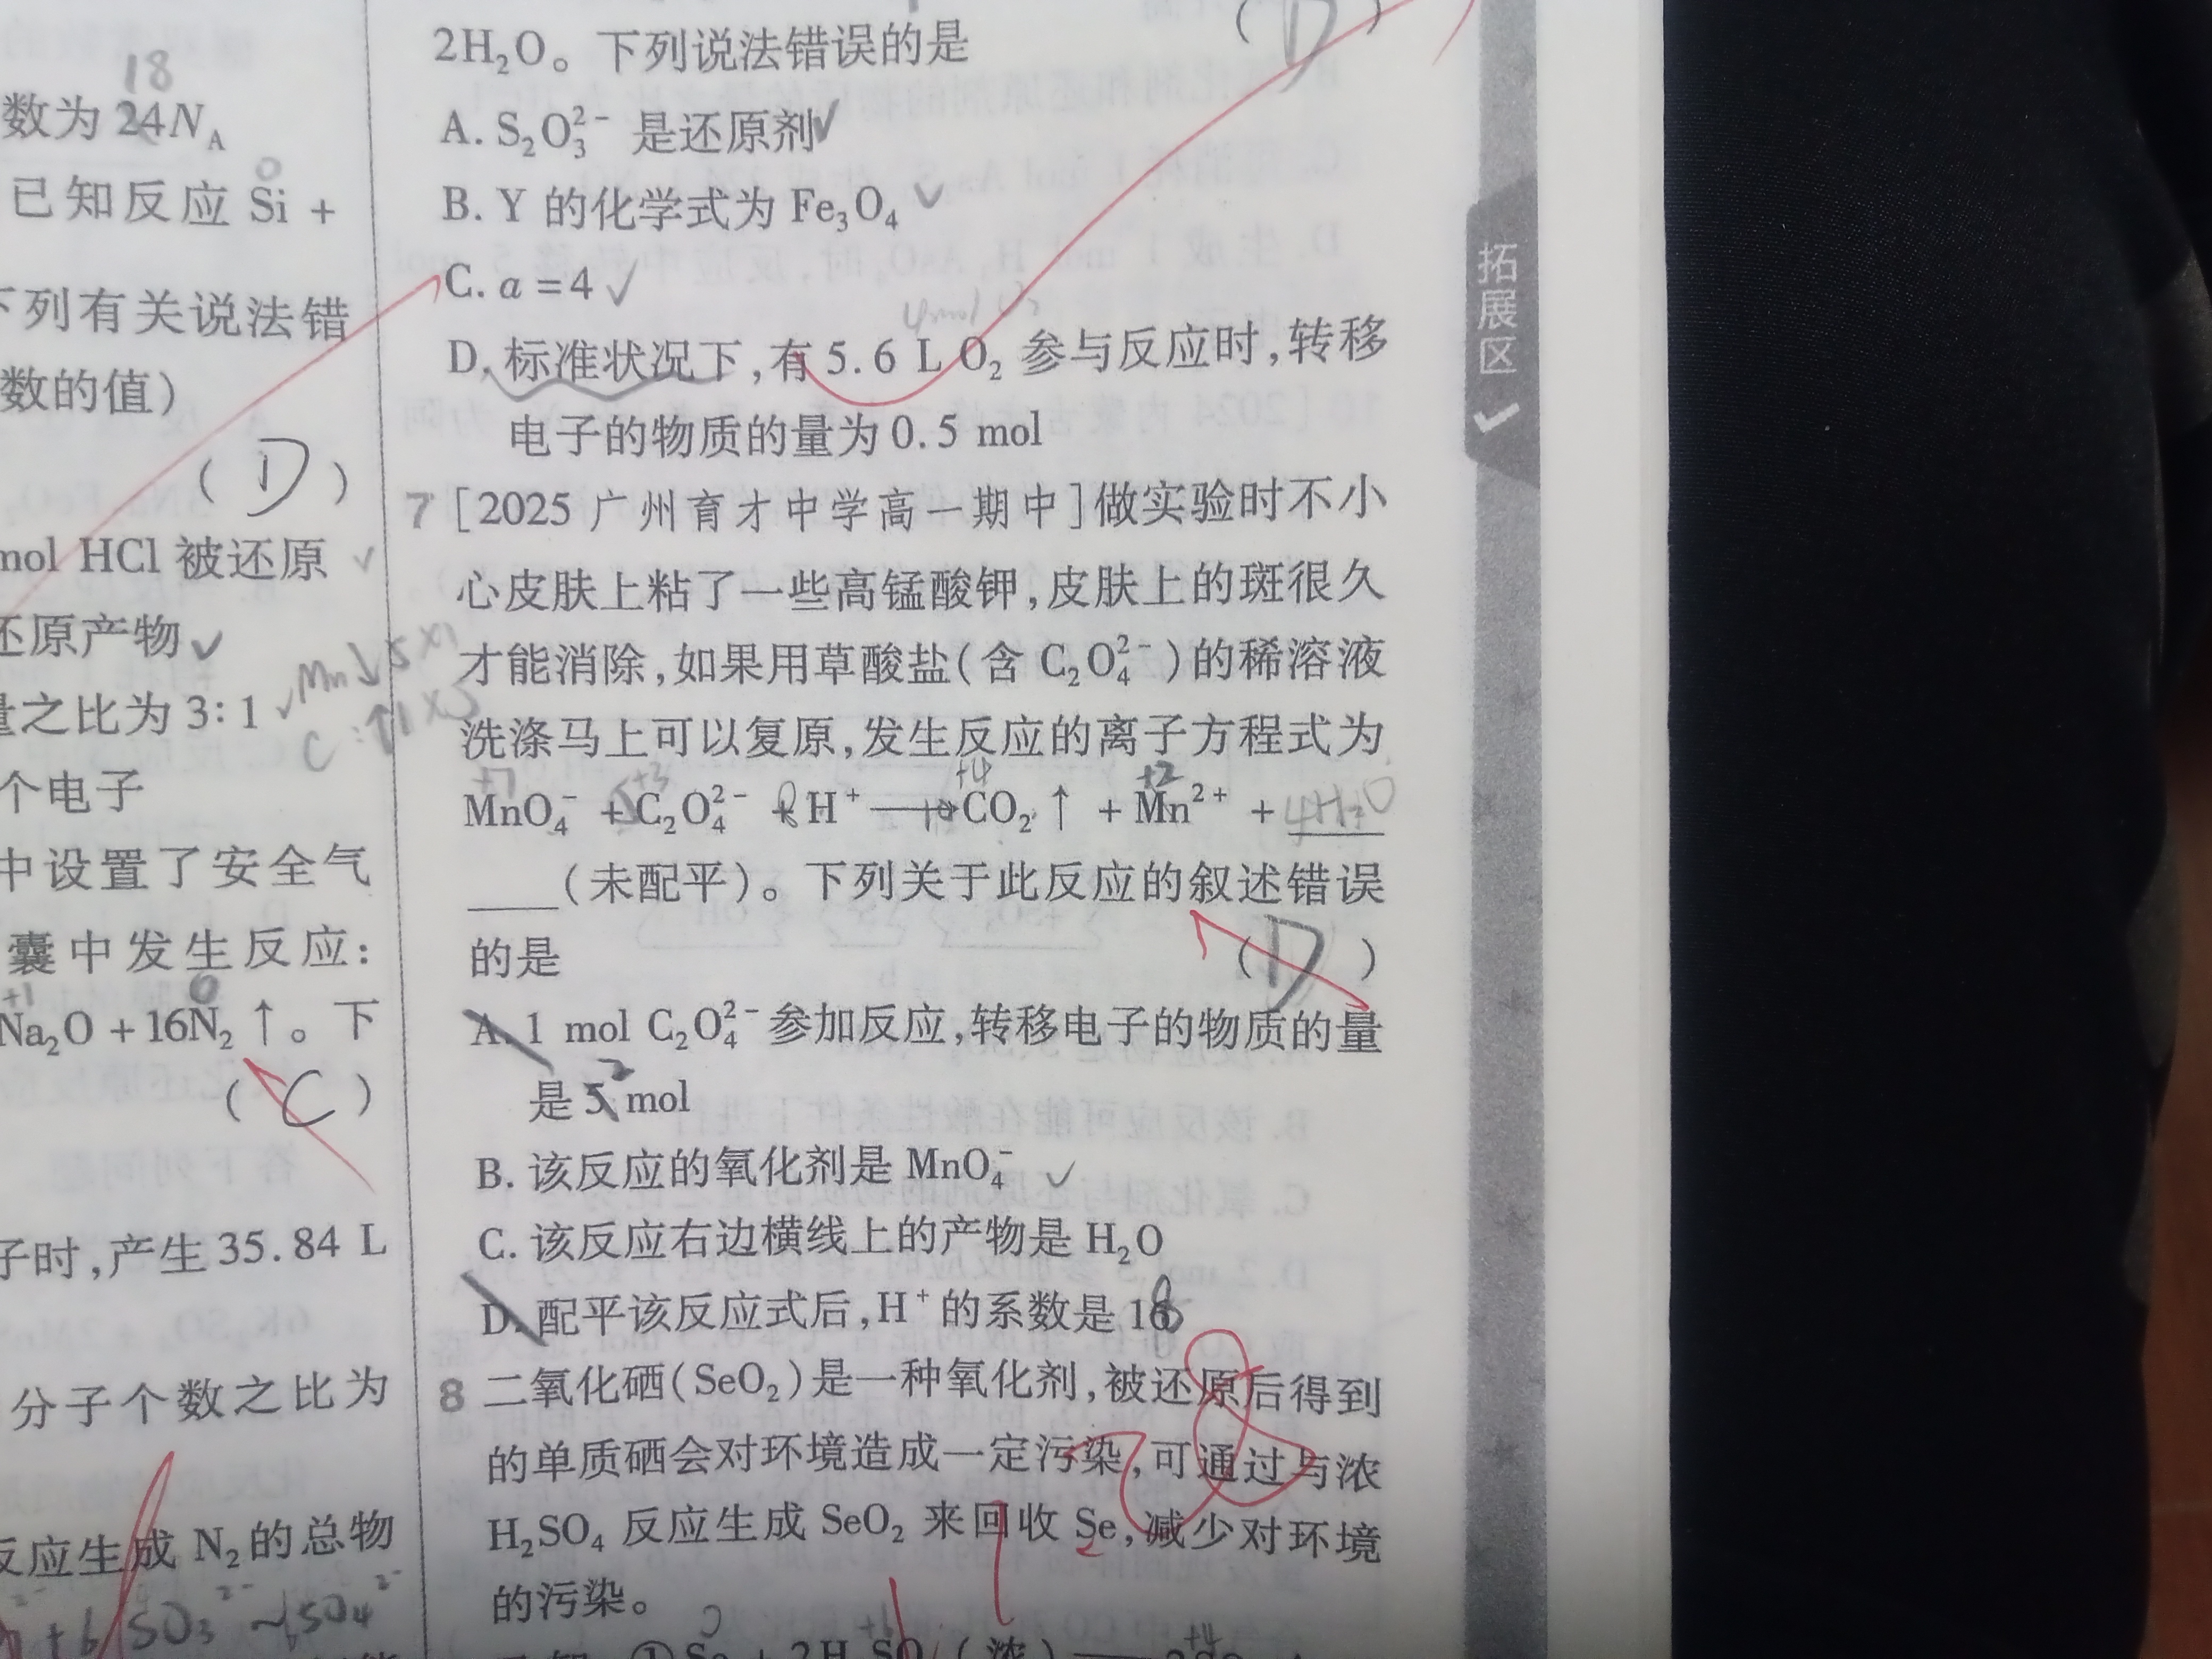 18
数为 24Nₐ
0
已知反应 Si +
下列有关说法错
数的值)
( D )
mol HCl 被还原 ✓
还原产物 ✓
量之比为 3:1 ✓
个电子
中设置了安全气
囊中发生反应:
+1 0
Na₂O + 16N₂↑。下
( C )
子时,产生 35.84 L
分子个数之比为
反应生成 N₂ 的总物
2H₂O。下列说法错误的是 ( D )
A. S₂O₃²⁻ 是还原剂 ✓
B. Y 的化学式为 Fe₃O₄ ✓
C. a = 4 ✓
D. 标准状况下,有 5.6 L O₂ 参与反应时,转移
电子的物质的量为 0.5 mol
7 [2025 广州育才中学高一期中]做实验时不小
心皮肤上粘了一些高锰酸钾,皮肤上的斑很久
才能消除,如果用草酸盐(含 C₂O₄²⁻)的稀溶液
洗涤马上可以复原,发生反应的离子方程式为
+7 +3 +4 +2
MnO₄⁻ + C₂O₄²⁻ + H⁺ ⟶ CO₂↑ + Mn²⁺ + 4H₂O
____(未配平)。下列关于此反应的叙述错误
的是 ( D )
A. 1 mol C₂O₄²⁻ 参加反应,转移电子的物质的量
是 5 2 mol
B. 该反应的氧化剂是 MnO₄⁻ ✓
C. 该反应右边横线上的产物是 H₂O
D. 配平该反应式后,H⁺ 的系数是 16
8 二氧化硒(SeO₂)是一种氧化剂,被还原后得到
的单质硒会对环境造成一定污染,可通过与浓
H₂SO₄ 反应生成 SeO₂ 来回收 Se,减少对环境
的污染。
拓展区